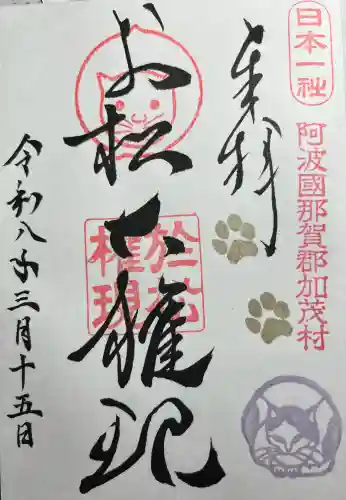 日本一社
阿波國那賀郡加茂村
奉拝
お松大権現
於松
権現
令和八年三月十五日